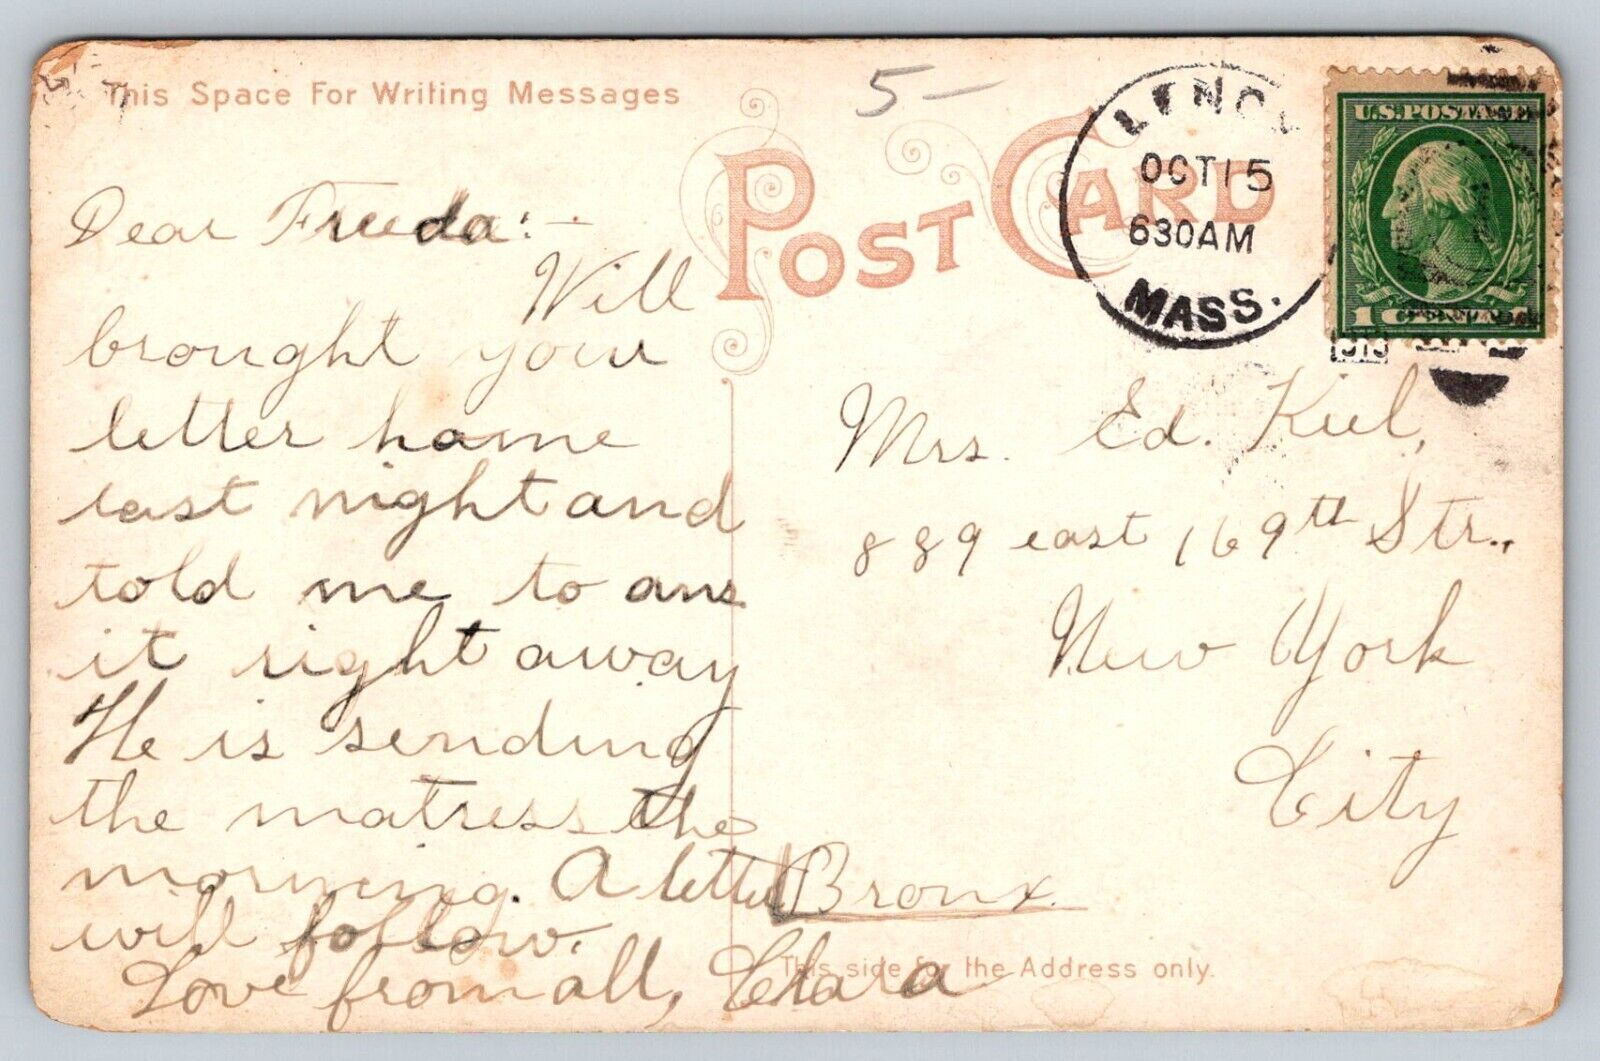 This Space For Writing Messages
5-
POST CARD
OCT 15
630AM
MASS.
U.S. POSTAGE
Dear Freeda:-
Will
brought your
letter home
last night and
told me to ans
it right away
He is sending
the matress the
morning. A letter
will follow.
Love from all, Clara
Mrs. Ed. Kiel,
889 east 169th Str.,
New York
City
Bronx.
This side for the Address only.